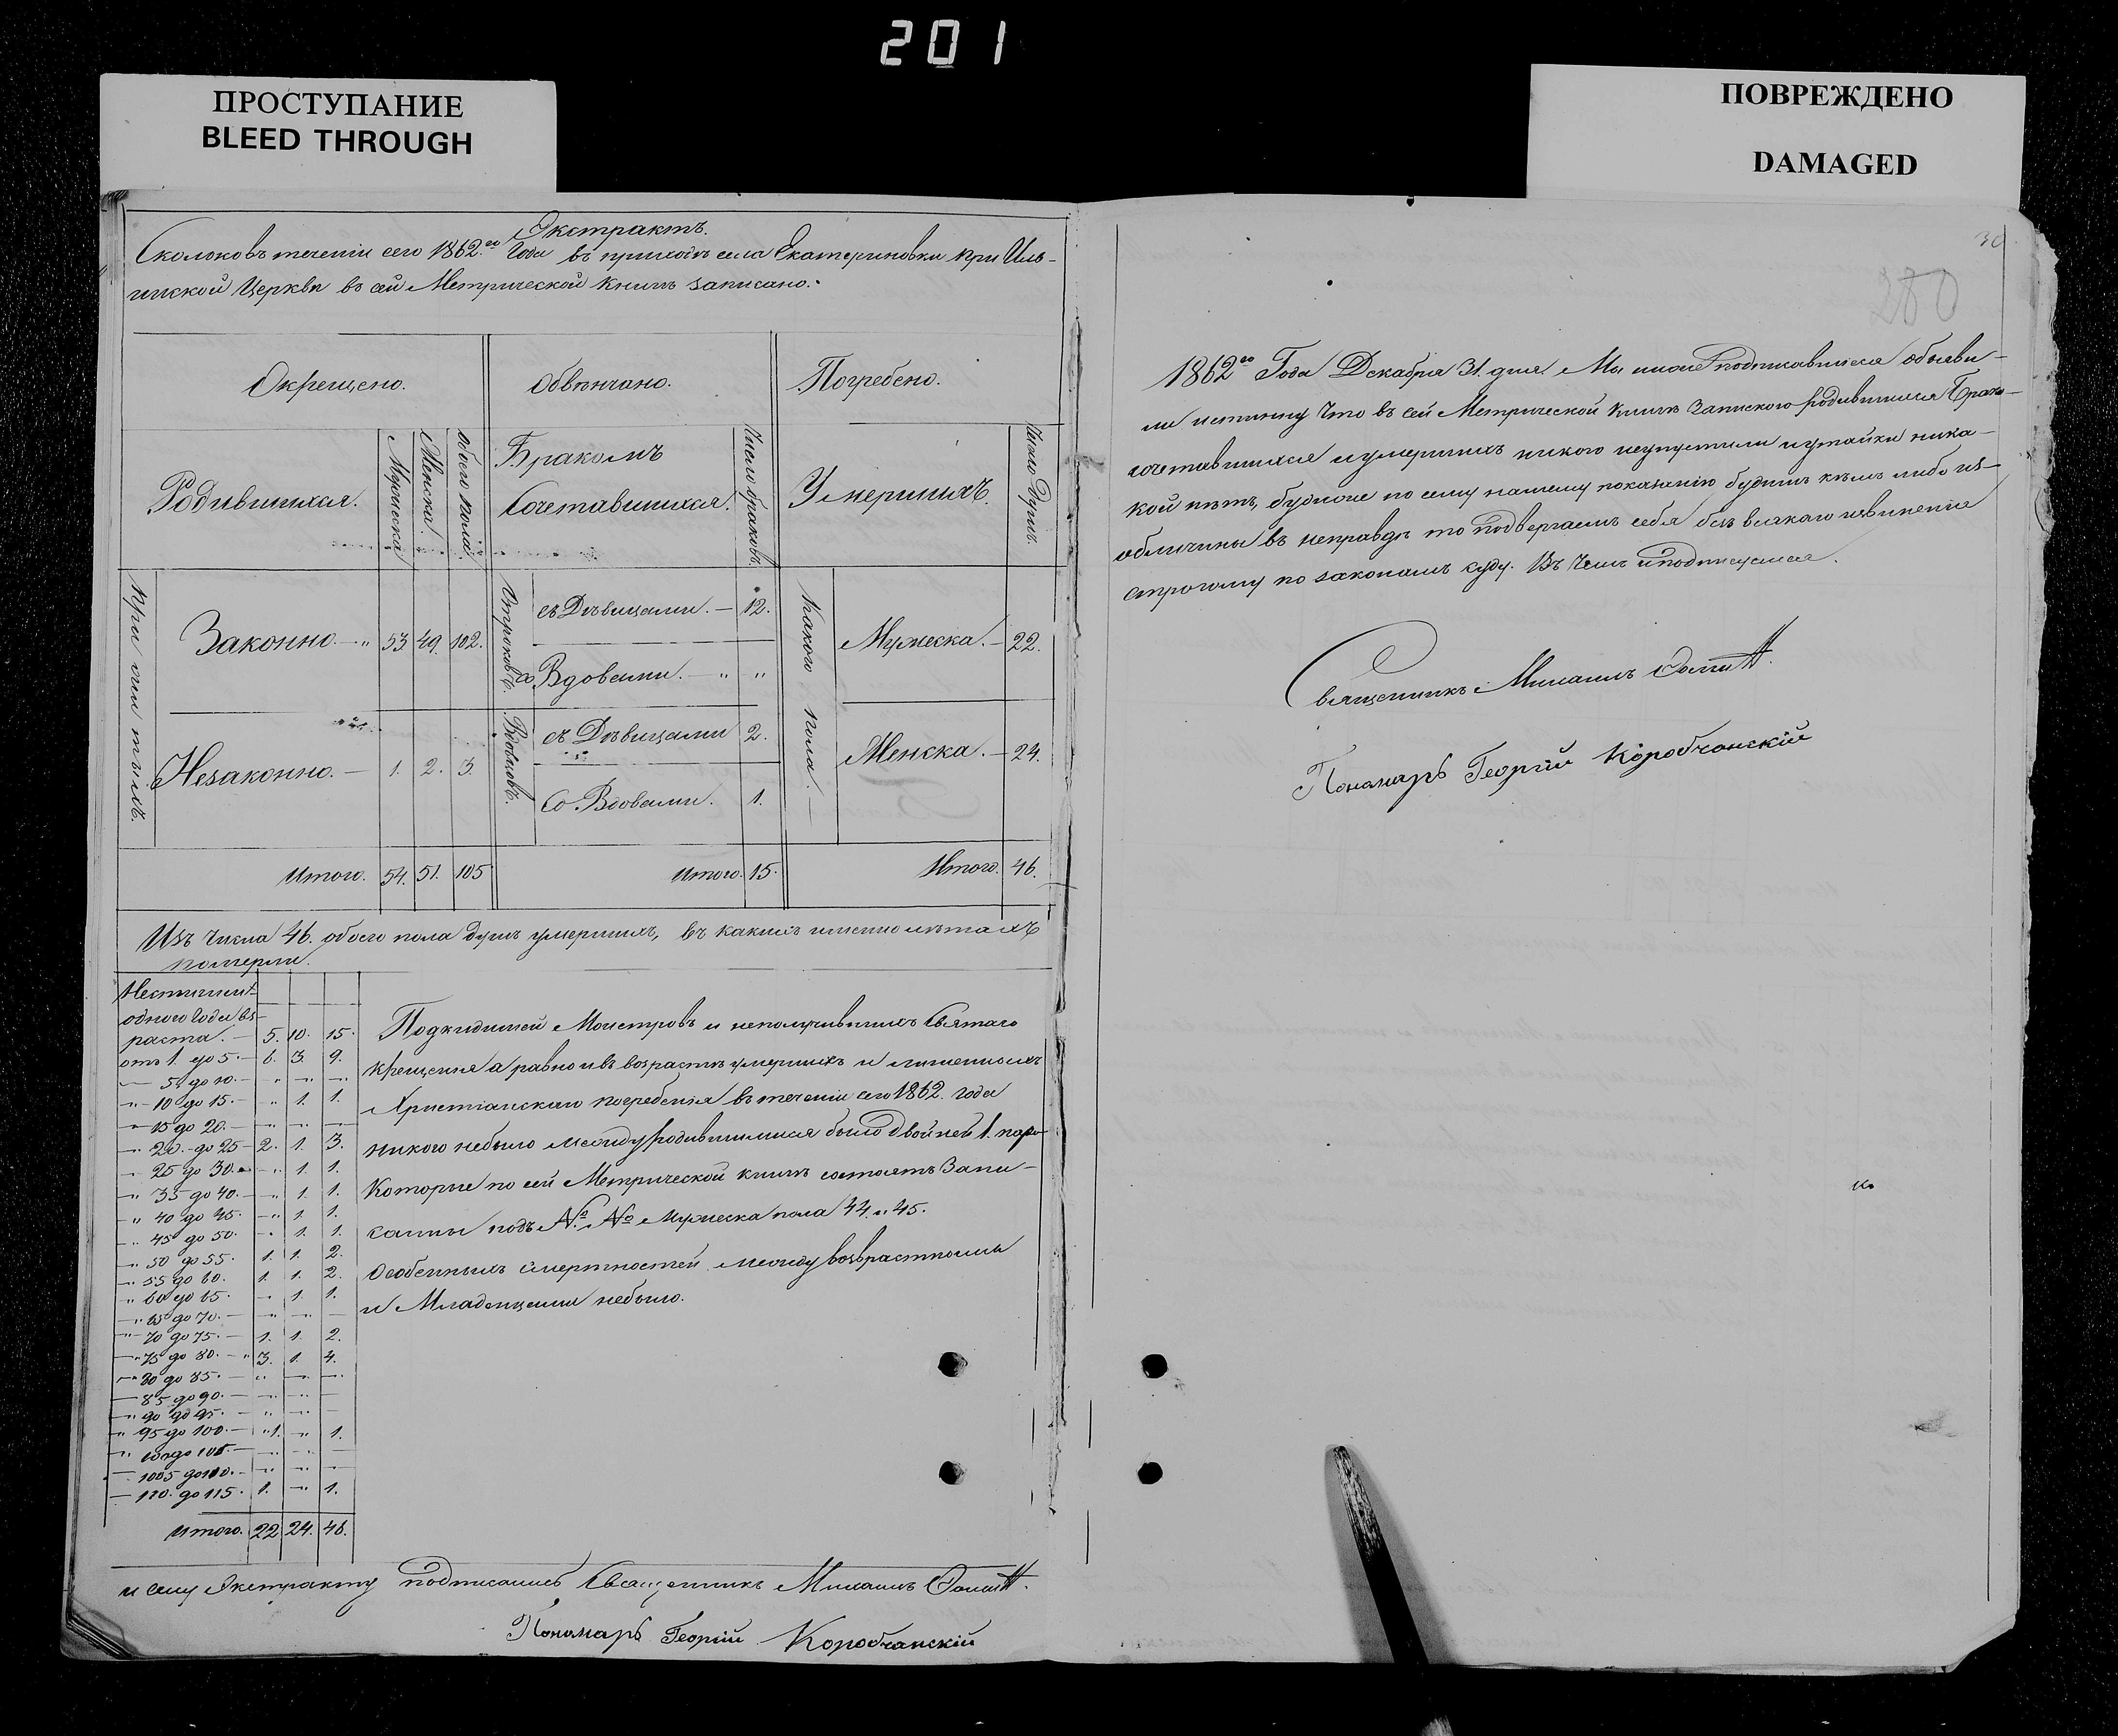 201
ПРОСТУПАНИЕ
BLEED THROUGH
ПОВРЕЖДЕНО
DAMAGED
Экстрактъ.
Сколоковъ теченіи сего 1862.го Года въ приходѣ села Екатериновки при Иль-
инской Церкви въ сей Метрической книгѣ записано.
Окрещено.
Обвѣнчано.
Погребено.
Родившихся.
Мужеска
Женска.
обоего пола.
Бракомъ
Сочетавшихся.
Число браковъ.
Умершихъ.
Число Душъ.
Законно. 53. 49. 102.
Незаконно. 1. 2. 3.
Отроковъ.
съ Дѣвицами. 12.
Вдовами. „ „
Вдовцовъ.
съ Дѣвицами 2.
Со Вдовами. 1.
Какого пола.
Мужеска. 22.
Женска. 24.
Итого. 54. 51. 105
Итого. 15.
Итого. 46.
Изъ числа 46. обоего пола душъ умершихъ, въ какихъ именно лѣтахъ
померли.
одного Года вз-
раста. 5. 10. 15.
отъ 1. до 5. 6. 3. 9.
5 до 10.
10 до 15. „ 1. 1.
15 до 20.
20. до 25 2. 1. 3.
25 до 30. „ 1. 1.
35 до 40. „ 1. 1.
40 до 45. „ 1. 1.
45 до 50. „ 1. 1.
50 до 55. 1. 1. 2.
55 до 60. 1. 1. 2.
60 до 65. „ 1. 1.
65 до 70.
70 до 75. 1. 1. 2.
75 до 80. 3. 1. 4.
80 до 85.
85 до 90.
90 до 95.
95 до 100. 1. „ 1.
100 до 105.
1005 до 110.
110. до 115. 1. „ 1.
Итого. 22. 24. 46.
Подкидишей Монстровъ и неполучившихъ Святаго
крещенія а равно ивъ возрастѣ умершихъ и лишенныхъ
Христіанскаго погребенія въ теченіи сего 1862. года
никого небыло между родившимися было двойней 1. пара
Которые по сей Метрической книгѣ состоятъ Запи-
саны подъ №. № Мужеска пола 44. и 45.
Особенныхъ смертностей между возврастными
и Младенцами небыло.
Экстракту подписались Священникъ Михаилъ
Пономарь Георгій Коробчанскій
30.
280
1862го Года Декабря 31. дня. Мы ниже подписавшіеся объяви-
ли истинну что въ сей Метрической книгѣ Записного родившихся Брако-
сочетавшихся и умершихъ никого неупустили и утайки ника-
кой нѣтъ, будеже по сему нашему показанію будимъ кѣмъ либо из-
обличины въ неправдѣ то подвергаемъ себя безъ всякаго извиненія
строгому по законамъ суду. Въ чемъ и подписуемся.
Священникъ Михаилъ
Пономарь Георгій Коробчанскій